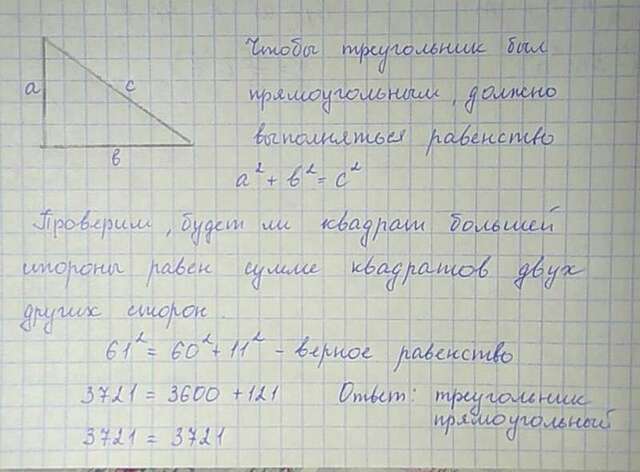 a
c
в
Чтобы треугольник был
прямоугольным, должно
выполняться равенство
a² + в² = c²
Проверим, будет ли квадрат большей
стороны равен сумме квадратов двух
других сторон.
61² = 60² + 11² - верное равенство
3721 = 3600 + 121 Ответ: треугольник
прямоугольный
3721 = 3721